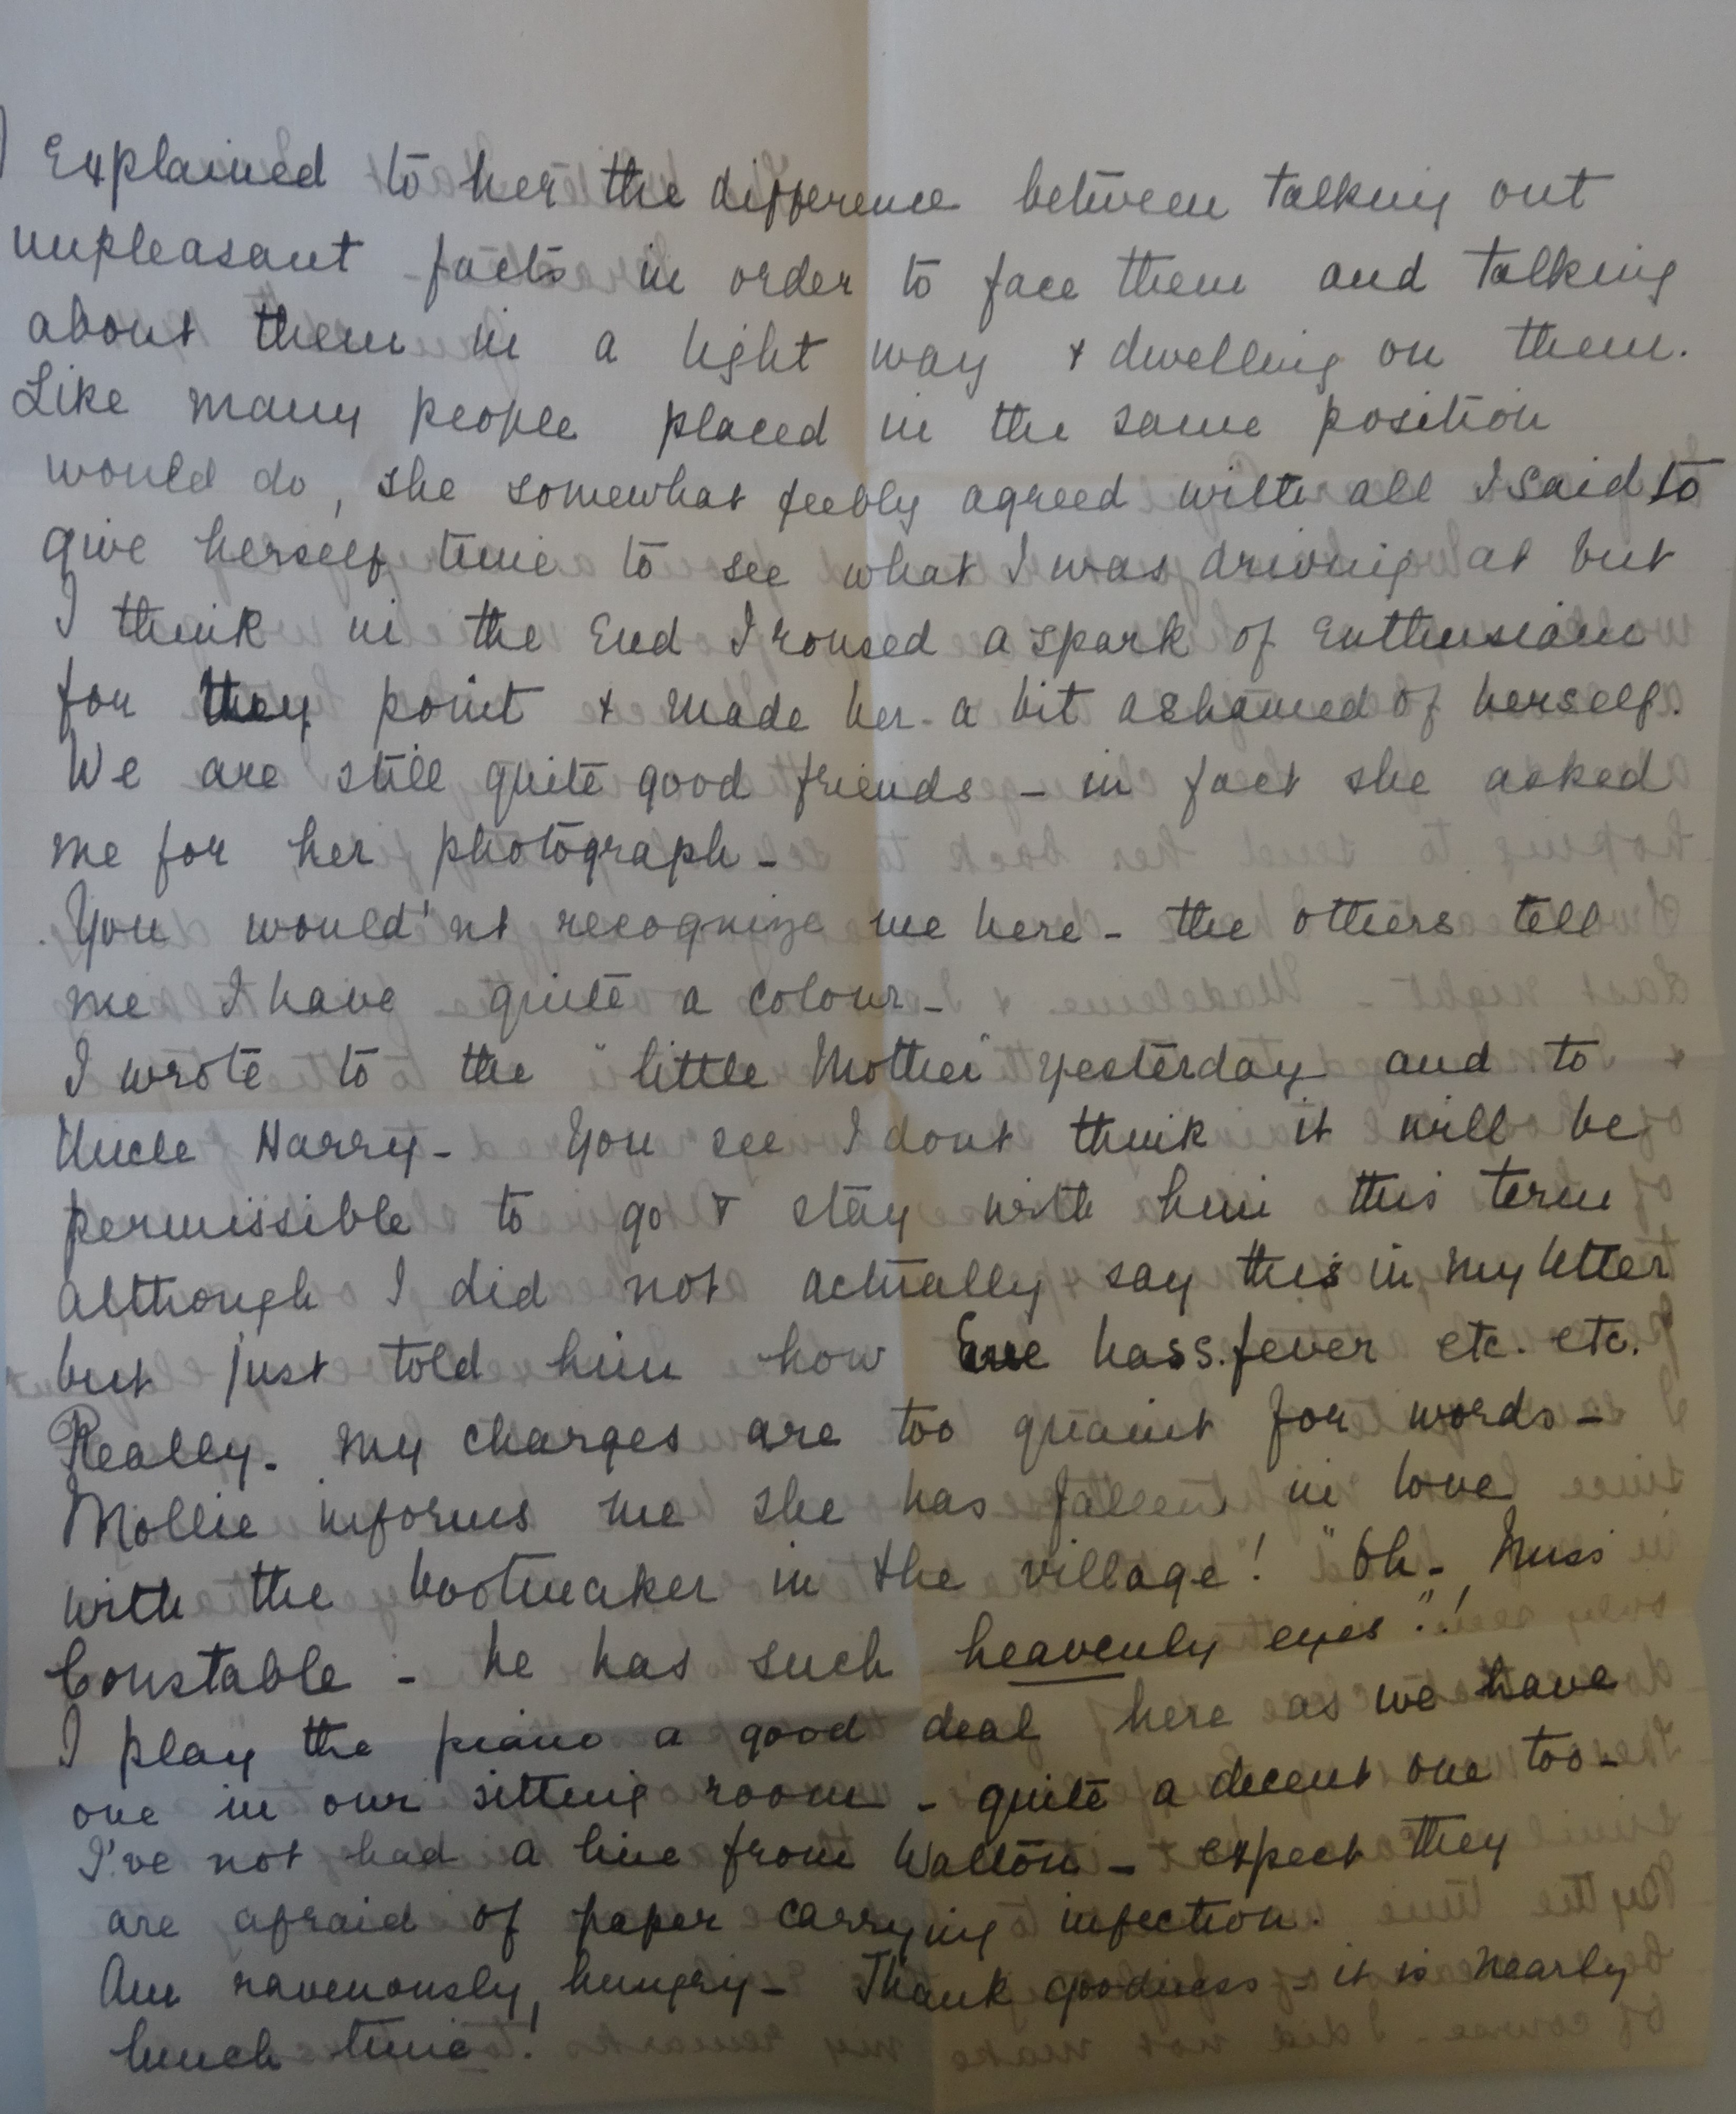 I Explained to her the difference between talking out
unpleasant facts in order to face them and talking
about them in a light way & dwelling on them.
Like many people placed in the same position
would do, she somewhat feebly agreed with all I said to
give herself time to see what I was driving at but
I think in the End I roused a spark of Enthusiasm
for my point & made her a bit ashamed of herself.
We are still quite good friends - in fact she asked
me for her photograph -
You would'nt recognize me here - the others tell
me I have quite a colour -
I wrote to the "little Mother" yesterday and to
Uncle Harry - You see I dont think it will be
permissible to go & stay with him this term
although I did not actually say this in my letter
but just told him how Eve has s. fever etc. etc.
Really - my charges are too quaint for words -
Mollie informs me she has fallen in love
with the bootmaker in the village! "Oh - Miss
Constable - he has such heavenly eyes"!!
I play the piano a good deal here as we have
one in our sitting room - quite a decent one too -
I've not had a line from Walton - expect they
are afraid of paper carrying infection.
Am ravenously hungry - Thank goodness - it is nearly
lunch time!